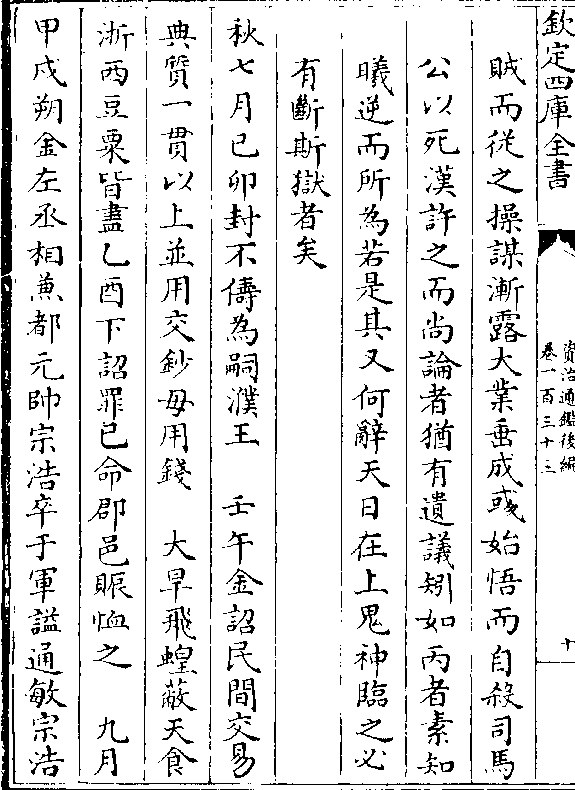 欽定四庫全書
資治通鑑後編
卷一百三十三
十
賊而從之操謀漸露大業垂成彧始悟而自殺司馬
公以死漢許之而尚論者猶有遺議矧如丙者素知
曦逆而所為若是其又何辭天日在上鬼神臨之必
有斷斯獄者矣
秋七月己卯封不儔為嗣濮王　壬午金詔民間交易
典質一貫以上並用交鈔毋用錢　大旱飛蝗蔽天食
浙西豆粟皆盡乙酉下詔罪己命郡邑賑恤之　九月
甲戌朔金左丞相兼都元帥宗浩卒于軍諡通敏宗浩